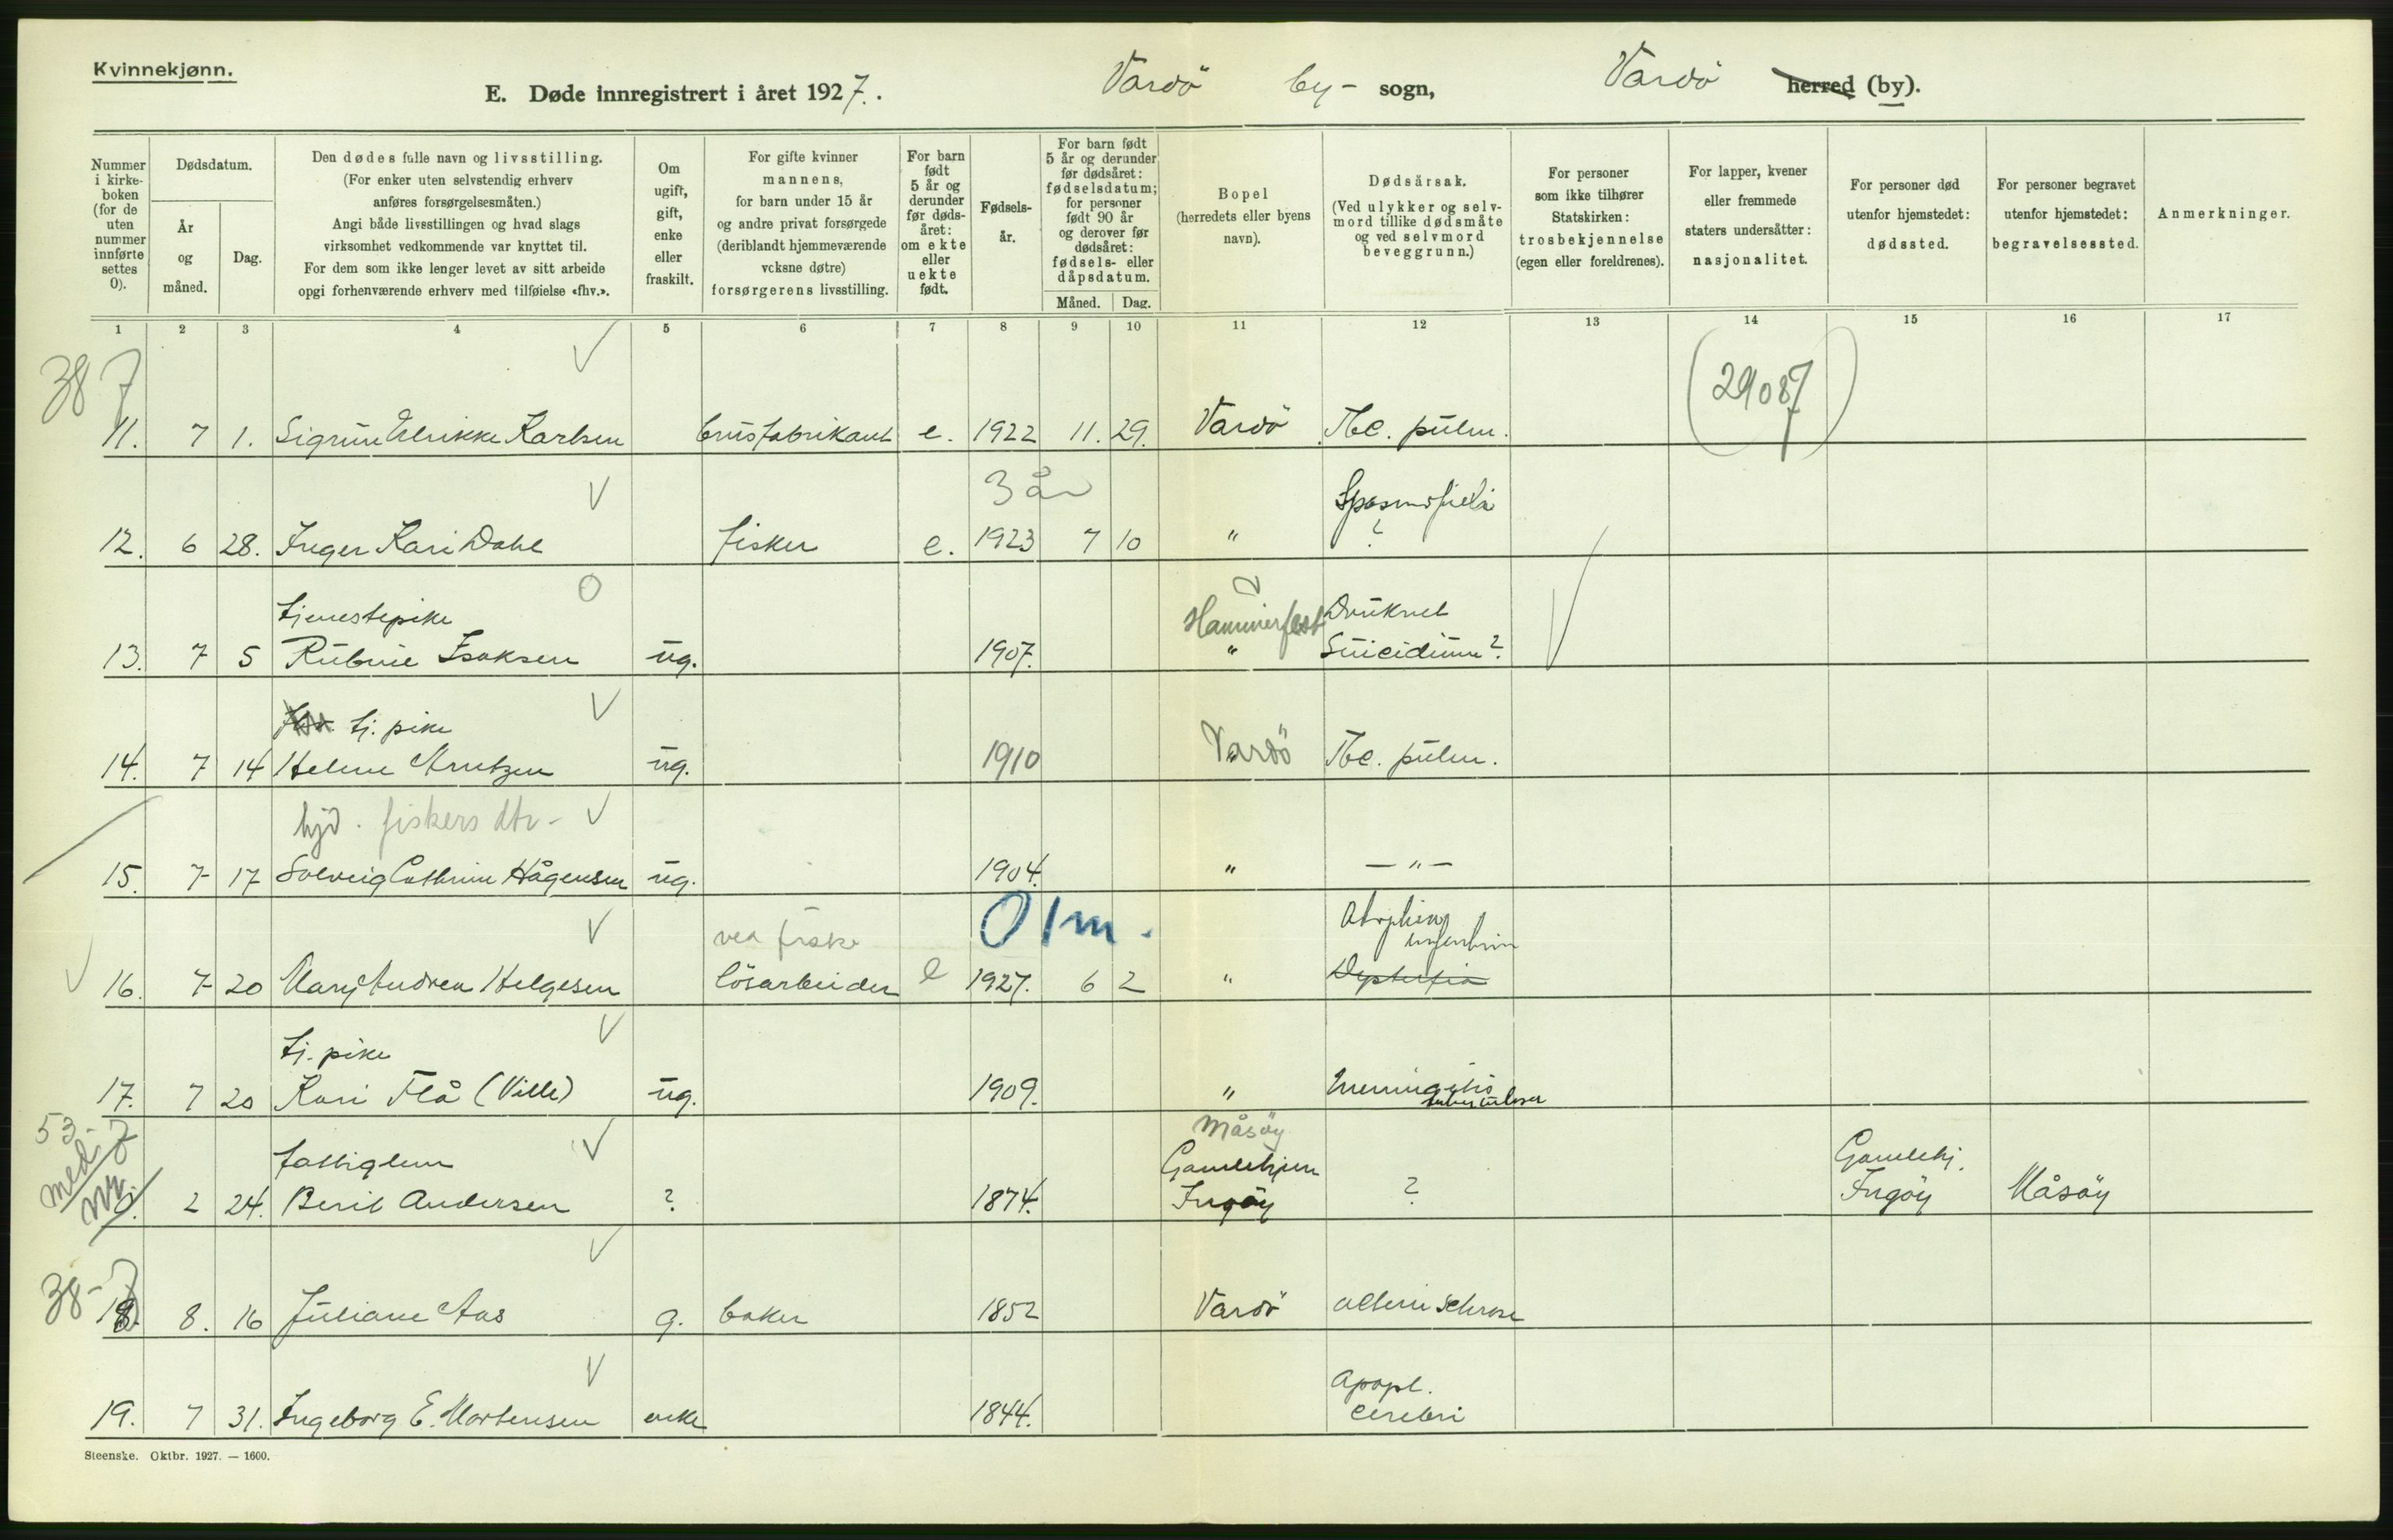 Kvinnekjønn.
E. Døde innregistrert i året 1927. Vardö by- sogn, Vardö herred (by).
Nummer i kirke-boken (for de uten nummer innførte settes 0).
Dødsdatum.
År og måned.
Dag.
Den dødes fulle navn og livsstilling.
(For enker uten selvstendig erhverv
anføres forsørgelsesmåten.)
Angi både livsstillingen og hvad slags
virksomhet vedkommende var knyttet til.
For dem som ikke lenger levet av sitt arbeide
opgi forhenværende erhverv med tilføielse «fhv.».
Om ugift, gift, enke eller fraskilt.
For gifte kvinner
mannens,
for barn under 15 år
og andre privat forsørgede
(deriblandt hjemmeværende
voksne døtre)
forsørgerens livsstilling.
For barn født 5 år og derunder før døds-året: om ekte eller uekte født.
Fødsels-år.
For barn født
5 år og derunder
før dødsåret:
fødselsdatum;
for personer
født 90 år
og derover før
dødsåret:
fødsels- eller
dåpsdatum.
Måned. Dag.
Bopel
(herredets eller byens
navn).
Dødsårsak.
(Ved ulykker og selv-
mord tillike dødsmåte
og ved selvmord
beveggrunn.)
For personer
som ikke tilhører
Statskirken:
trosbekjennelse
(egen eller foreldrenes).
For lapper, kvener
eller fremmede
staters undersåtter:
nasjonalitet.
For personer død
utenfor hjemstedet:
dødssted.
For personer begravet
utenfor hjemstedet:
begravelsessted.
Anmerkninger.
1 2 3 4 5 6 7 8 9 10 11 12 13 14 15 16 17
38 7
(29087)
11. 7 1. Sigrun Ulrikke Karlsen brusfabrikant e. 1922 11. 29. Vardö Tbc. pulm.
3 år
Spasmofieli
12. 6 28. Inger Kari Dahl fisker e. 1923 7 10 " ?
tjenestepike Hammerfest Druknet
13. 7 5 Rubine Isaksen ug. 1907. " Suicidium?
tj. pike
14. 7 14 Helene Arntzen ug. 1910 Vardö Tbc. pulm.
hjv. fiskers dtr-
15. 7 17 Solveig Cathrine Hågensen ug. 1904. " — " —
ved fiske 0 1m. Atrophia
16. 7 20 Mary Andrea Helgesen lösarbeider e 1927. 6 2 " Dyspepsia
tj. pike
17. 7 20 Kari Flå (Ville) ug. 1909. " meningitis
tuberculosa
53-7
med. nr. Måsöy
fattiglem Gamlehjem Gamlehj.
0. 2 24. Berit Andersen ? 1874. Ingöy ? Ingöy Måsöy
38-7
18. 8. 16 Juliane Aas g. baker 1852 Vardö arterieschrose
Apopl.
19. 7 31. Ingeborg E. Mortensen enke 1844. cerebri
Steenske. Oktbr. 1927. — 1600.